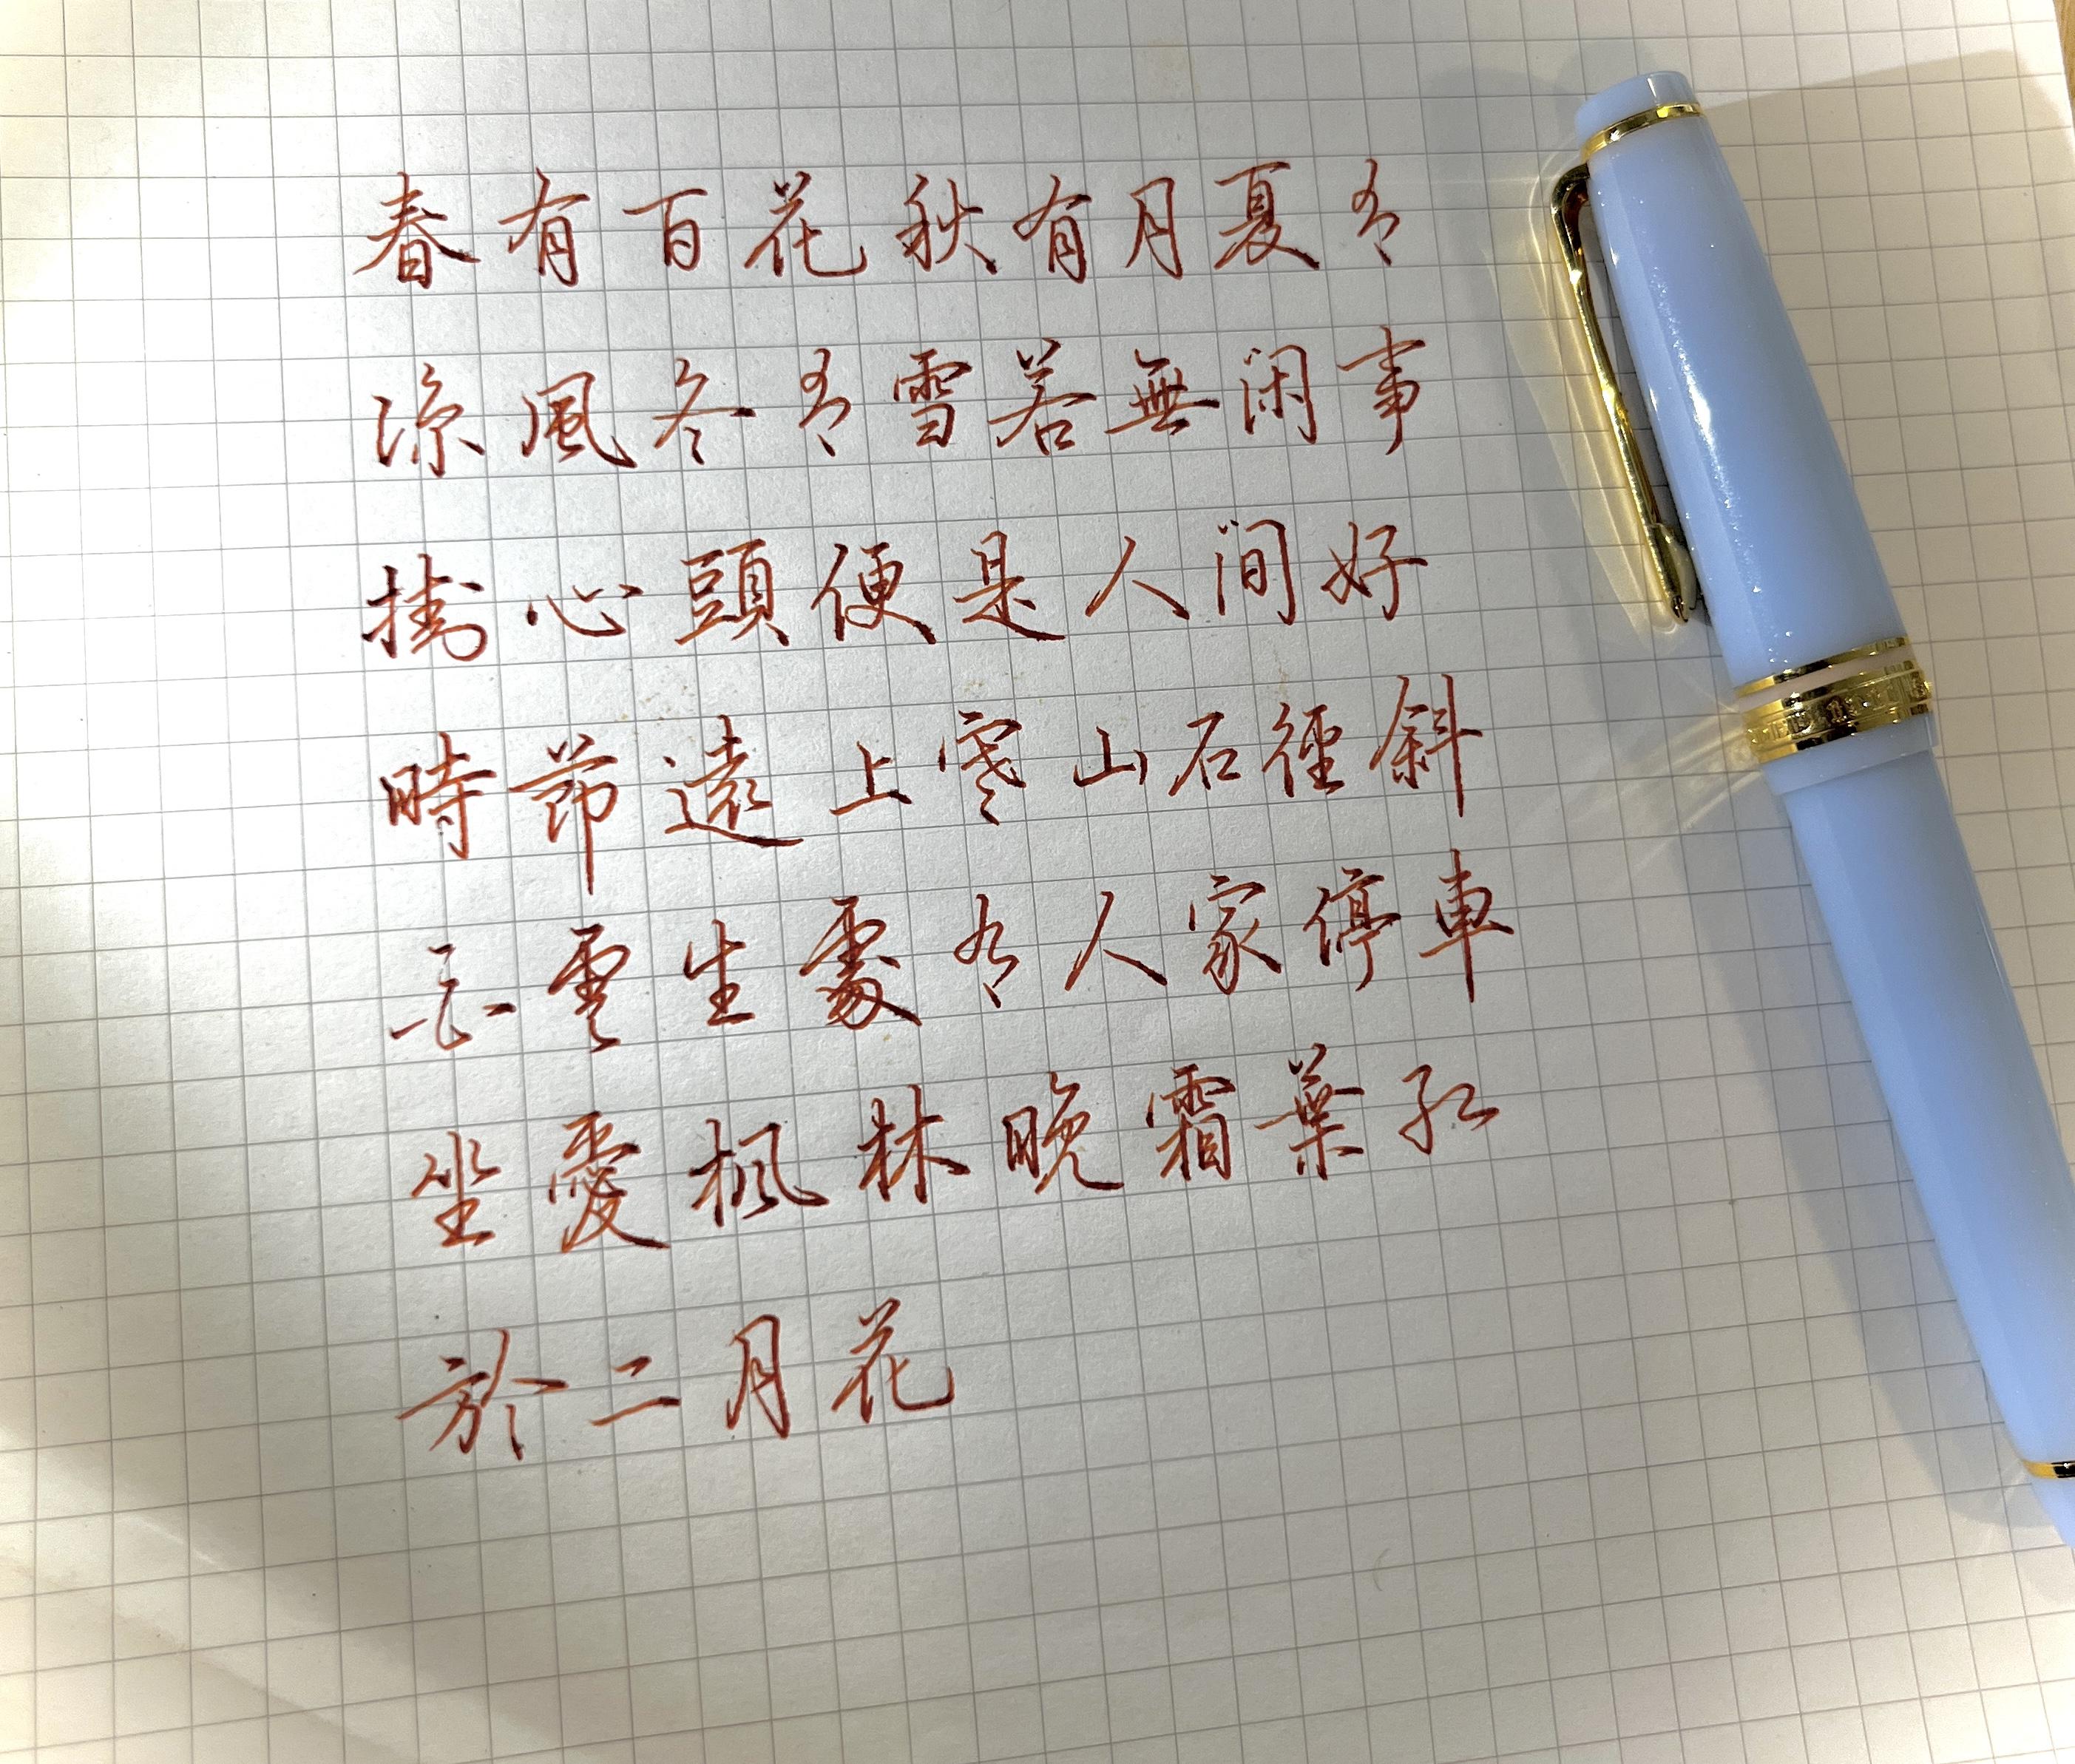 春有百花秋有月夏有
涼風冬有雪若無闲事
掛心頭便是人间好
時節遠上寒山石徑斜
雲生處有人家停車
坐愛楓林晚霜葉红
於二月花